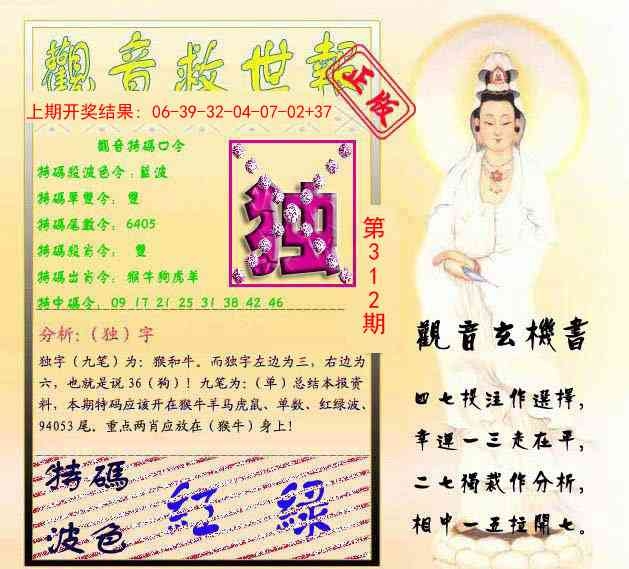 觀音救世報
正版
上期开奖结果：06-39-32-04-07-02+37
觀音特碼口令
特碼段波色令：藍波
特碼單雙令： 雙
特碼尾數令： 6405
特碼段肖令： 雙
特碼出肖令： 猴牛狗虎羊
特中碼令： 09 17 21 25 31 38 42 46
独
第312期
分析：（独）字
独字（九笔）为：猴和牛。而独字左边为三，右边为
六，也就是说36（狗）！九笔为：（单）总结本报资
料，本期特码应该开在猴牛羊马虎鼠、单数、红绿波、
94053尾。重点两肖应放在（猴牛）身上！
特碼
波色
紅 綠
觀音玄機書
四七投注作選擇，
幸運一三走在平，
二七獨裁作分析，
相中一五拉開七。